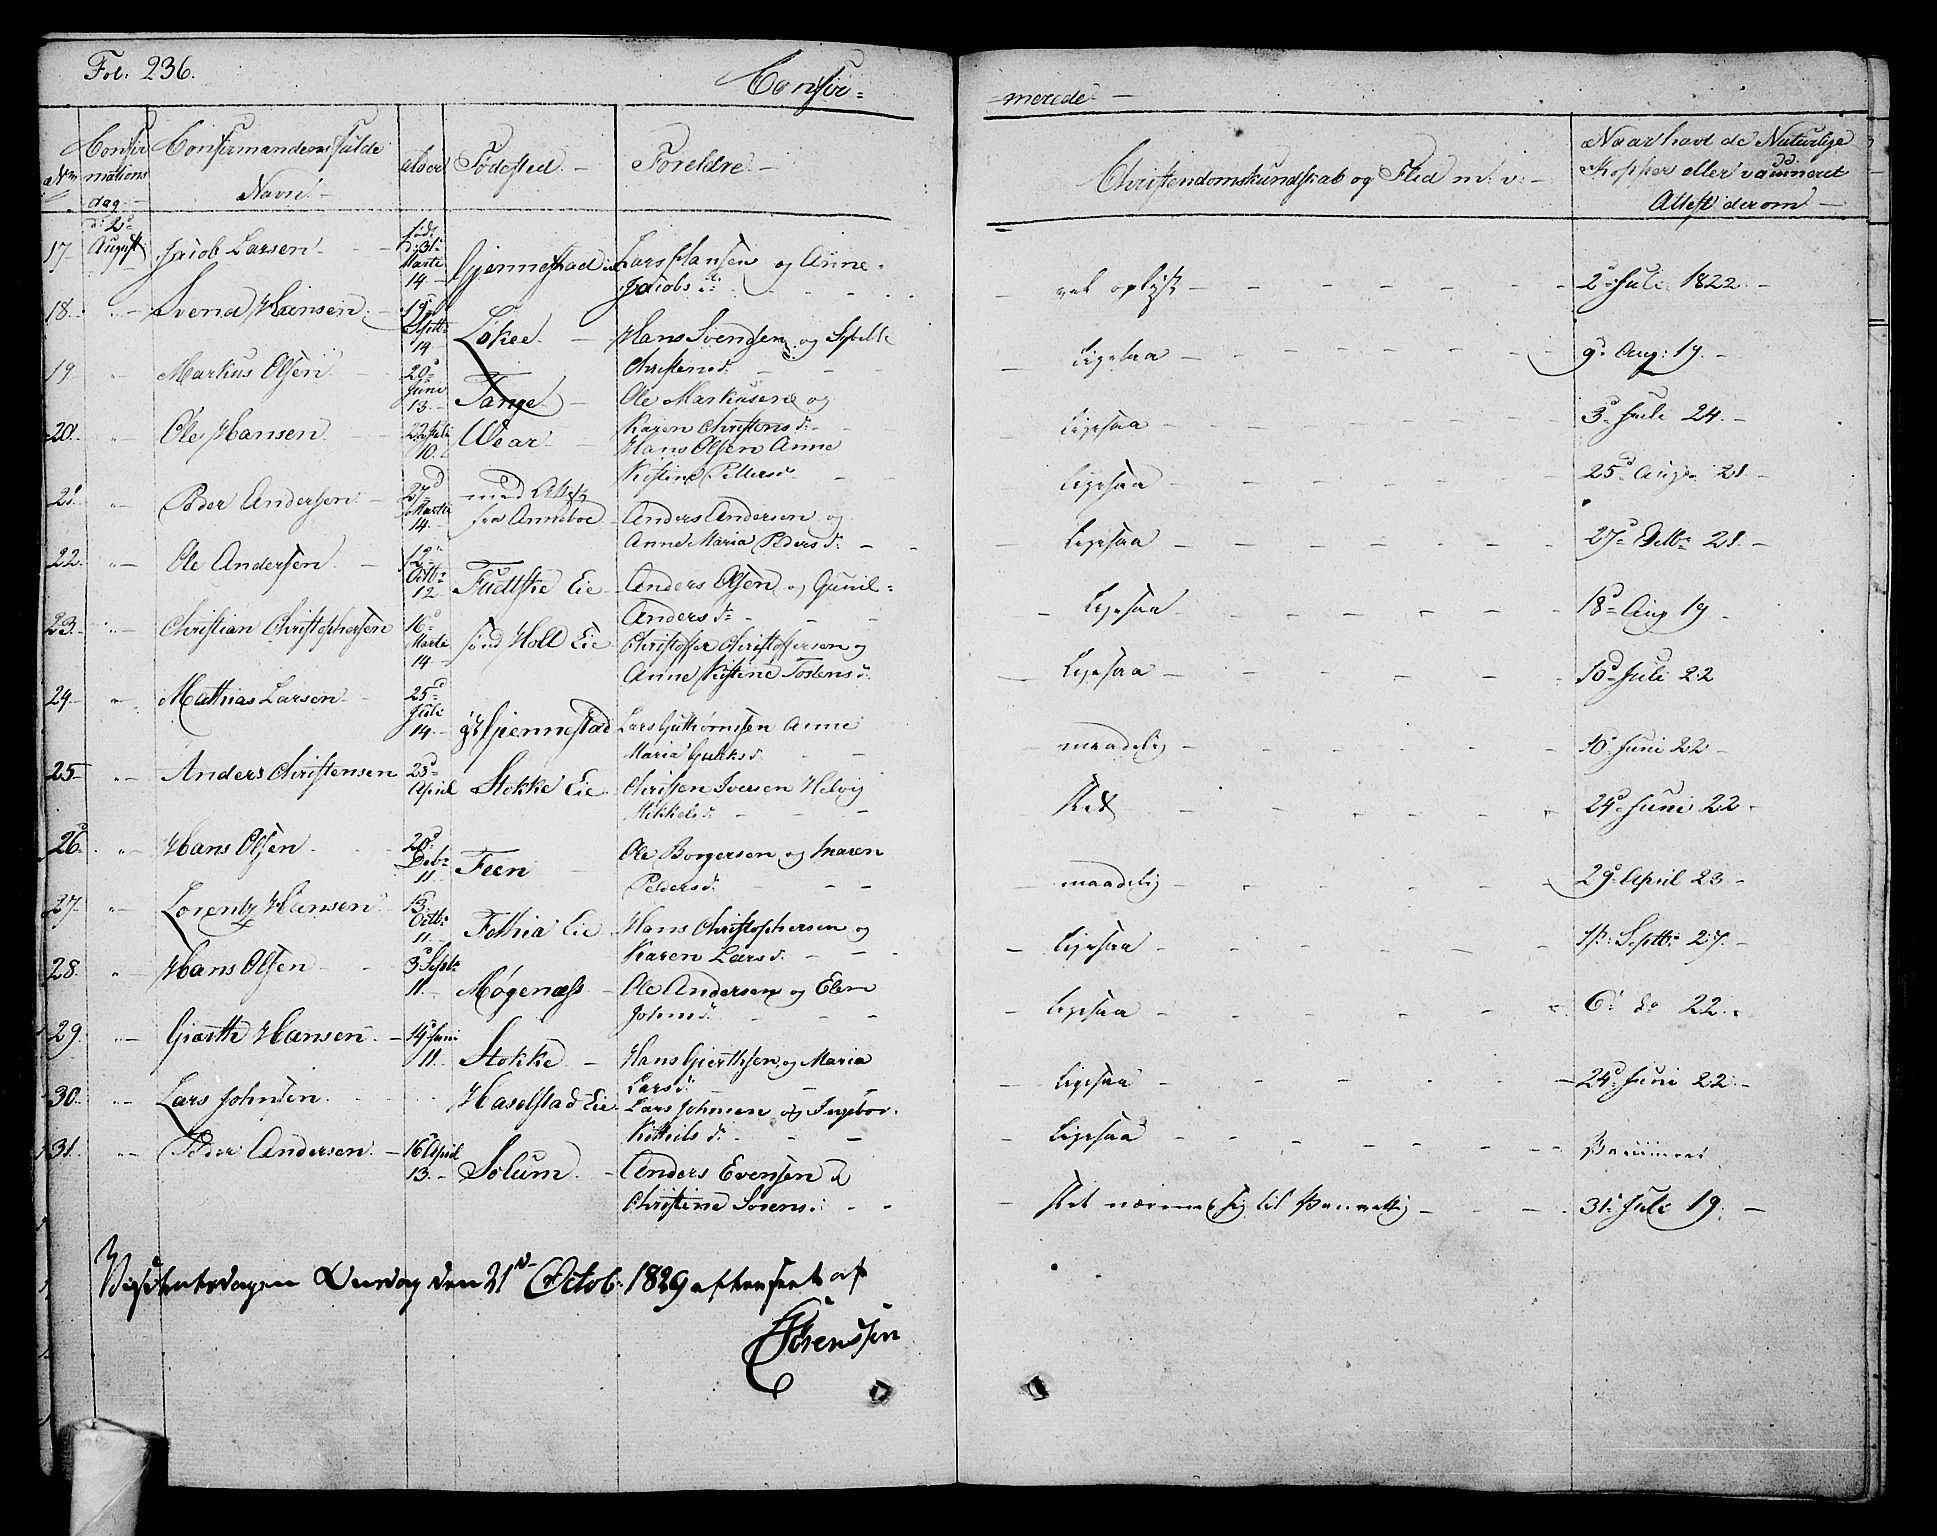 Fol: 236.
Confir=
=merede. —
No
Confir
mations
dag. —
Confirmandens fulde
Navn —
alder
Fødested. —
Foreldre. —
Christendomskundskab og Flid m. v. —
Naar havt de Naturlige
Kopper eller vaccineret
Attest derom —
17. d: 2d August Jacob Larsen. — født d: 31. Marti 14 Gjennestad Lars Hansen og Anne Jacobs d: vel oplyst — 2d Juli 1822. —
18. " Svend Hansen. 19d Septb 14 Løkee. — Hans Svendsen og Sybille Christens d: Ligesaa — 9d Aug: 19. —
19 " Markus Olsen — 20d Juni 13. — Tange. — Ole Markusen og Karen Christens d: — Ligesaa — 3d Juli 24. —
20. " Ole Hansen. — 22 Juli 10. Wear — Hans Olsen Anne Kistine Petters d. — Ligesaa — 25d Aug. 21. —
21. " Peder Andersen — 27d Marti 14. — med Attest fra Anneboe Anders Andersen og Anne Maria Peders d: — Ligesaa — 27d 21. —
22. " Ole Andersen. — 12d Octb: 12 Eie — Anders Olsen og Gunil= Anders d: — Ligesaa — 18d Aug 19. —
23. " Christian Christophersen 16d Marti 14. — Eie Christoffer Christoffersen og Anne Kistine Tostens d. Ligesaa — 10d Juli 22
24. " Mathias Larsen. — 25d Juli 14. — Gjennestad Lars Guthormsen Anne Maria d. maadelig — 10d Juni 22 —
25 — " Anders Christensen 23d April Stokke Eie. Christen Iversen Helvig Mikkels d. — slet — 24d Juni 22 —
26. " Hans Olsen — 20d Deb: 11 Feen — Ole Borgersen og Maren Peders d. — maadelig — 29d April 23 —
27. " Lorentz Hansen. 13 Octb: 11. — Eie Hans Christophersen og Karen Lars d. — Ligesaa — Septb: 27. —
28. " Hans Olsen — 3d Septb: 11. — Møgenæss — Ole Andersen og Elen Johns d. — Ligesaa — 6d do 22. —
29. " Giærth Hansen. — 14d Juni 11. Stokke — Hans Gierthsen og Maria Lars d. — Ligesaa — 24d Juni 22. —
30. " Lars Johnsen. Haselstad Eie Lars Johnsen og Ingebor. Kittils d: — Ligesaa — Vaccineret
31. " Peder Andersen. — 16d April 13. — Solum. — Anders Evensen & Christine Sørens. — slet nærmer sig til Vanvittig — 31d Juli 19. —
Visitatsdagen Onsdag den 21d Octob: 1829 efterseet af
Sørenssen